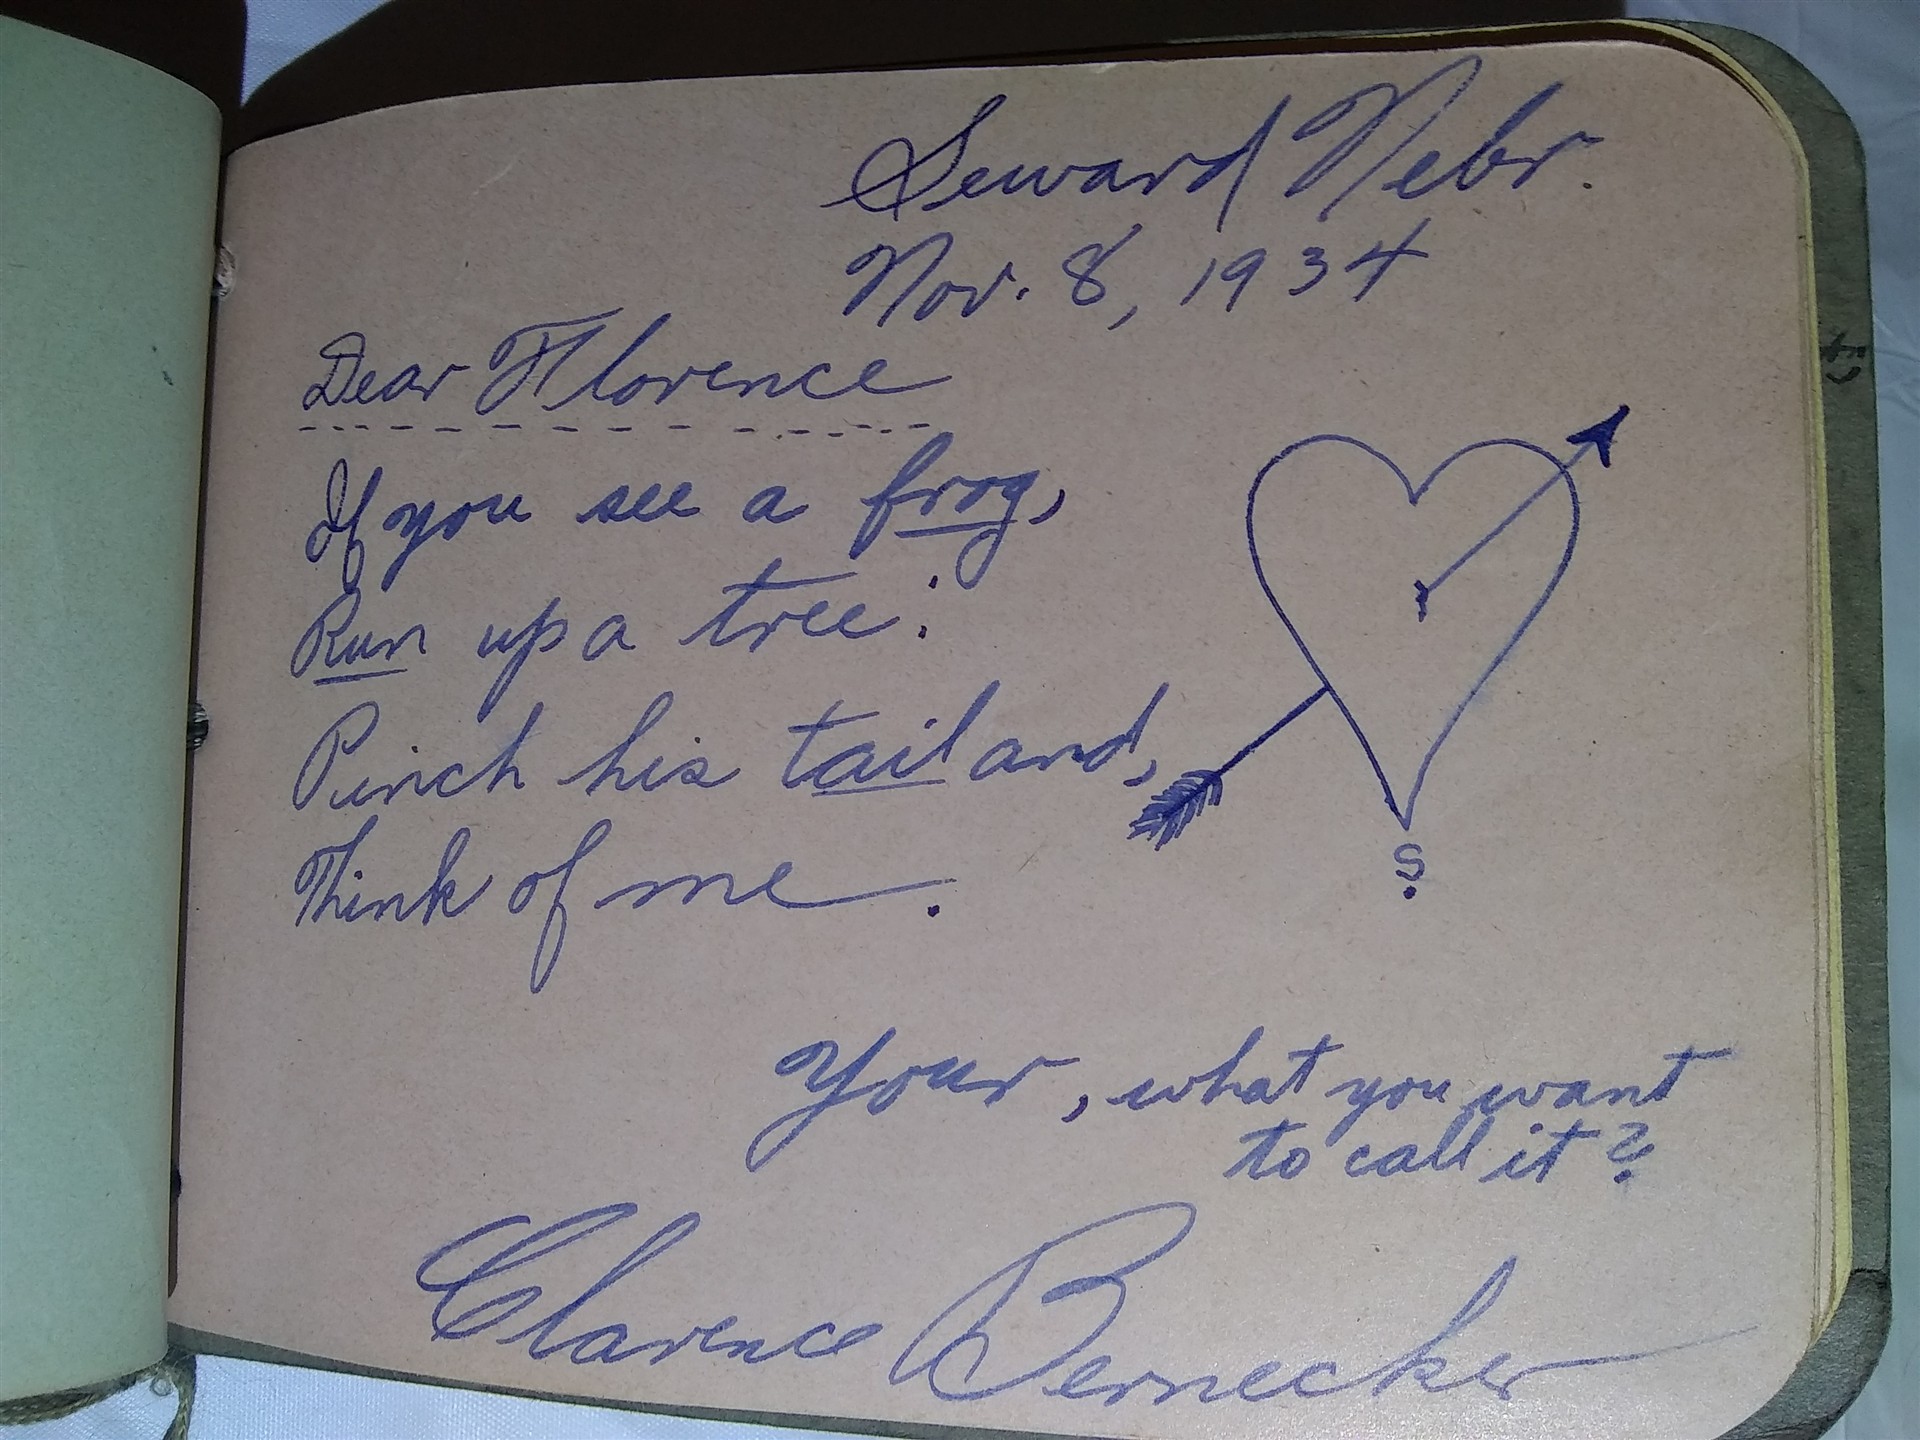 Seward Nebr.
Nov. 8, 1934
Dear Florence
If you see a frog,
Run up a tree:
Pinch his tail and,
Think of me.
?
Your, what you want
to call it?
Clarence Bernecker